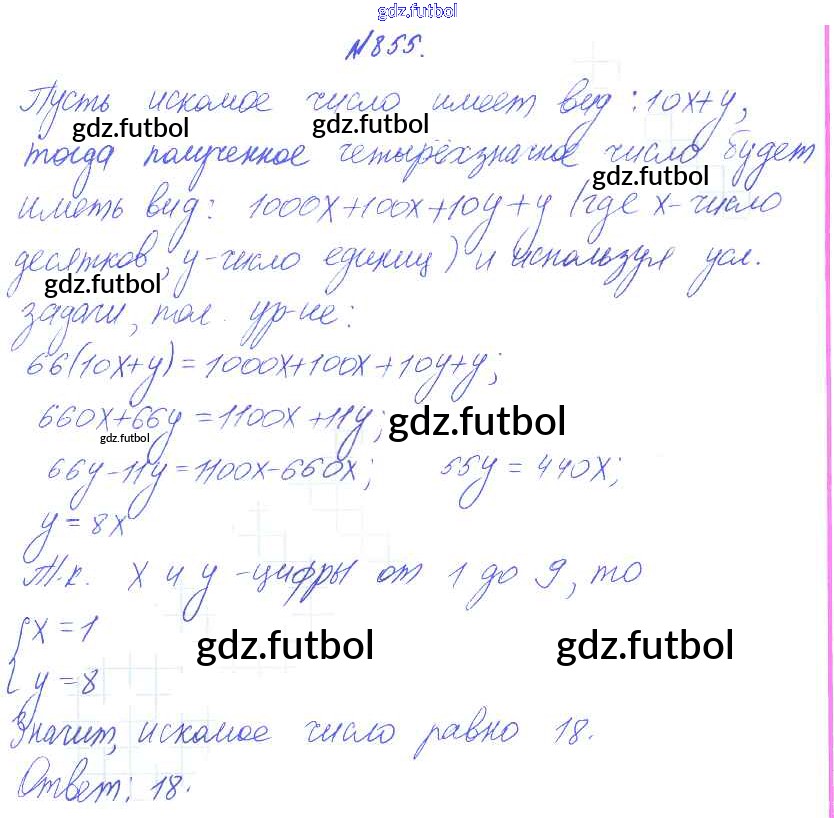 gdz.futbol
№855.
Пусть искомое число имеет вид: 10x+y,
gdz.futbol gdz.futbol
тогда полученное четырёхзначное число будет
gdz.futbol
иметь вид: 1000x+100x+10y+y (где x-число
десятков, y-число единиц) и используя усл.
gdz.futbol
задачи, пол. ур-ие:
66(10x+y)=1000x+100x+10y+y;
660x+66y=1100x+11y; gdz.futbol
gdz.futbol
66y-11y=1100x-660x; 55y=440x;
y=8x
Т.к. x и y -цифры от 1 до 9, то
{x=1
gdz.futbol gdz.futbol
y=8
Значит, искомое число равно 18.
Ответ: 18.